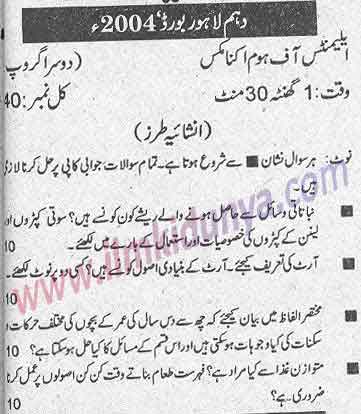 دہم لاہور بورڈ، 2004ء
ایلیمنٹس آف ہوم اکنامکس (دوسرا گروپ
وقت: 1 گھنٹہ 30 منٹ کل نمبر: 40
(انشائیہ طرز)
نوٹ: ہر سوال نشان ■ سے شروع ہوتا ہے۔ تمام سوالات جوابی کاپی پر حل کرنا لازمی
ہیں۔
■ نباتاتی وسائل سے حاصل ہونے والے ریشے کون کونسے ہیں؟ سوتی کپڑوں اور
لینن کے کپڑوں کی خصوصیات اور استعمال کے بارے میں لکھئے۔ 10
■ آرٹ کی تعریف کیجئے۔ آرٹ کے بنیادی اصول کونسے ہیں؟ کسی دو پر نوٹ لکھئے۔
10
■ مختصر الفاظ میں بیان کیجئے کہ چھ سے دس سال کی عمر کے بچوں کی مختلف حرکات و
سکنات کی کیا وجوہات ہوسکتی ہیں اور اس قسم کے مسائل کا کیا حل ہوسکتا ہے؟ 10
■ متوازن غذا سے کیا مراد ہے؟ فہرست طعام بناتے وقت کن کن اصولوں پر عمل کرنا
ضروری ہے؟ 10
www.ilmkidunya.com